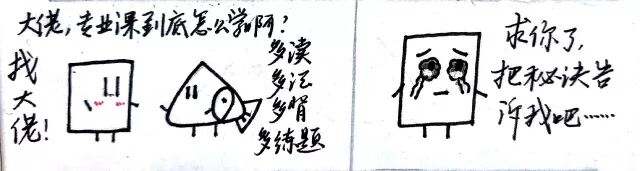 大佬,专业课到底怎么学啊?
找大佬!
多读
多记
多背
多练题
求你了,
把秘诀告
诉我吧……